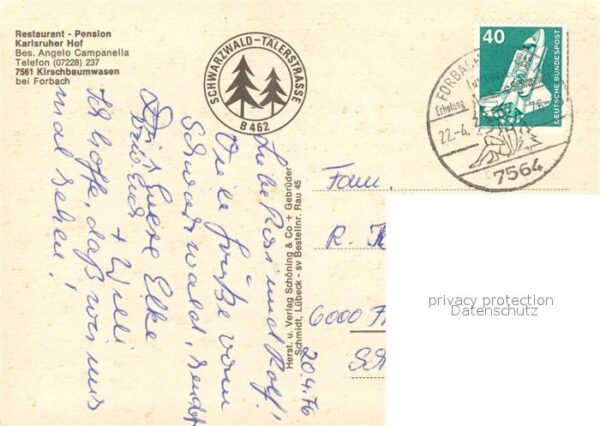 Restaurant - Pension
Karlsruher Hof
Bes. Angelo Campanella
Telefon (07228) 237
7561 Kirschbaumwasen
bei Forbach
SCHWARZWALD-TÄLERSTRASSE
B 462
40
DEUTSCHE BUNDESPOST
FORBACH
Erholung
22.-4. 76
7564
20.4.76
Liebe Rosi und Rolf!
Viele Grüße vom
Schwarzwald, sendet
Euch
Eure Elke
+ Willi
Ich hoffe, daß wir uns
mal sehen!
Herst. u. Verlag Schöning & Co + Gebrüder
Schmidt, Lübeck - sv Bestellnr. Rau 45
Fam.
R.
6000
privacy protection
Datenschutz